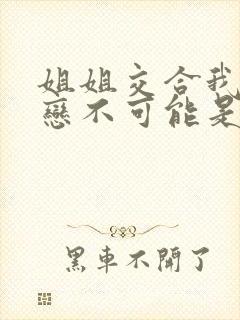 姐姐交合我
戀不可能是
黑車不開了